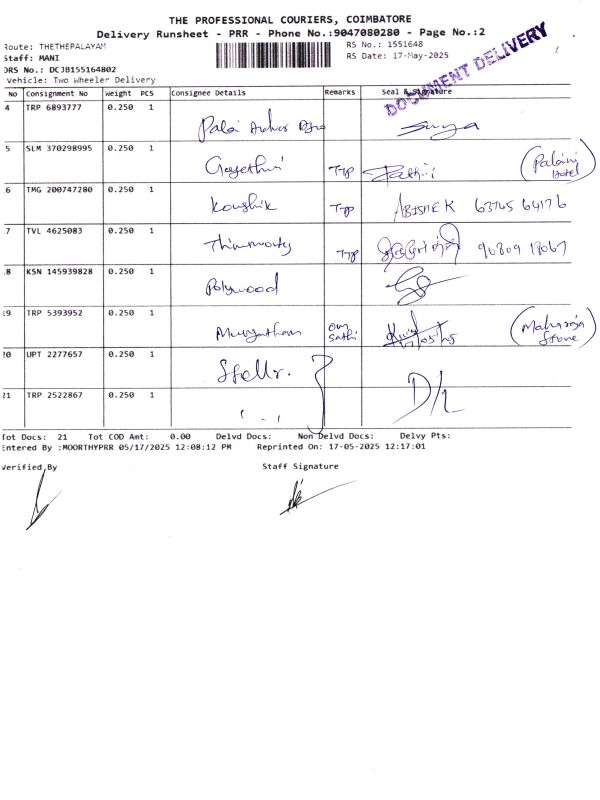 THE PROFESSIONAL COURIERS, COIMBATORE
Delivery Runsheet - PRR - Phone No.:9047080280 - Page No.:2
Route: THETHEPALAYAM
RS No.: 1551648
Staff: MANI
RS Date: 17-May-2025
DRS No.: DCJB155164802
Vehicle: Two Wheeler Delivery
DOCUMENT DELIVERY
No Consignment No Weight PCS Consignee Details Remarks Seal & Signature
4 TRP 6893777 0.250 1 Surya
5 SLM 370298995 0.250 1 Gayethri Typ (Palani Hotel)
6 TMG 200747280 0.250 1 Koushik Typ ABISHEK 63745 64176
7 TVL 4625083 0.250 1 Typ
8 KSN 145939828 0.250 1 Polywood
19 TRP 5393952 0.250 1 (Maharaja Stone)
20 UPT 2277657 0.250 1
21 TRP 2522867 0.250 1 D/L
Tot Docs: 21 Tot COD Amt: 0.00 Delvd Docs: Non Delvd Docs: Delvy Pts:
Entered By :MOORTHYPRR 05/17/2025 12:08:12 PM Reprinted On: 17-05-2025 12:17:01
Verified By Staff Signature